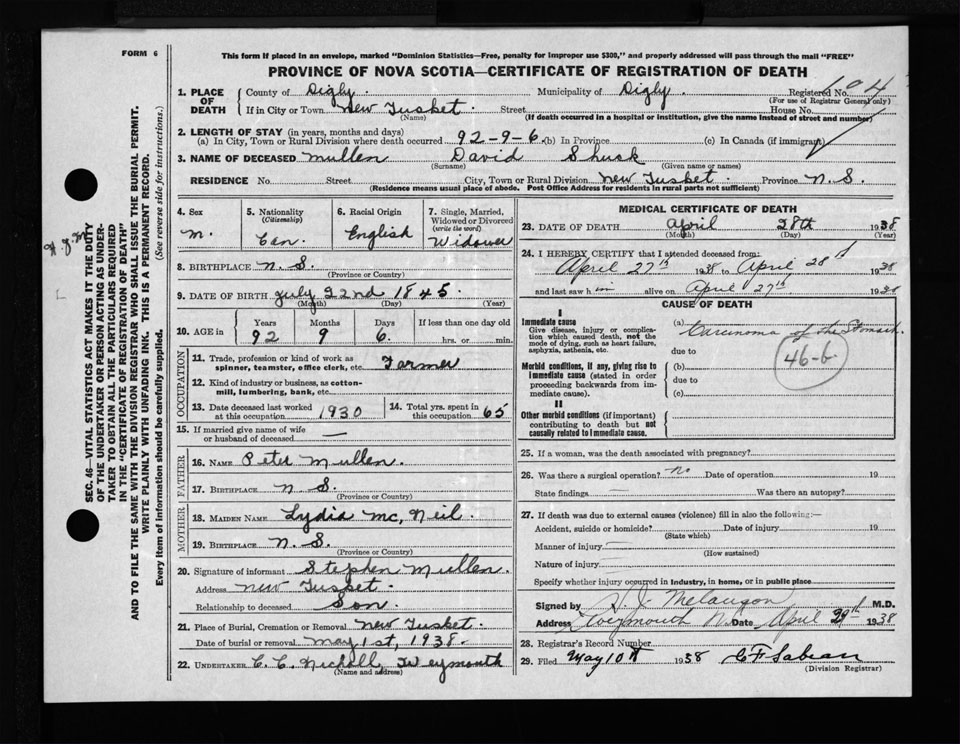 FORM 6
This form if placed in an envelope, marked "Dominion Statistics—Free, penalty for improper use $300," and properly addressed will pass through the mail "FREE"
PROVINCE OF NOVA SCOTIA—CERTIFICATE OF REGISTRATION OF DEATH
1. PLACE OF DEATH County of Digby. Municipality of Digby. Registered No. 104
(For use of Registrar General only)
If in City or Town New Tusket. Street House No.
(Name) (If death occurred in a hospital or institution, give the name instead of street and number)
2. LENGTH OF STAY (in years, months and days)
(a) In City, Town or Rural Division where death occurred 92-9-6. (b) In Province (c) In Canada (if immigrant)
3. NAME OF DECEASED Mullen David Shuck
(Surname) (Given name or names)
RESIDENCE No. Street City, Town or Rural Division New Tusket. Province N.S.
(Residence means usual place of abode. Post Office Address for residents in rural parts not sufficient)
4. Sex
M.
5. Nationality
(Citizenship)
Can.
6. Racial Origin
English
7. Single, Married, Widowed or Divorced
(write the word)
Widower
8. BIRTHPLACE N.S.
(Province or Country)
9. DATE OF BIRTH July 22nd 1845.
(Month) (Day) (Year)
10. AGE in Years Months Days If less than one day old
92 9 6. hrs. or min.
OCCUPATION
11. Trade, profession or kind of work as
spinner, teamster, office clerk, etc. Farmer
12. Kind of industry or business, as cotton-
mill, lumbering, bank, etc.
13. Date deceased last worked
at this occupation 1930
14. Total yrs. spent in
this occupation 65
15. If married give name of wife
or husband of deceased —
FATHER
16. NAME Peter Mullen.
17. BIRTHPLACE N.S.
(Province or Country)
MOTHER
18. MAIDEN NAME Lydia Mc, Neil.
19. BIRTHPLACE N.S.
(Province or Country)
20. Signature of informant Stephen Mullen.
Address New Tusket.
Relationship to deceased Son.
21. Place of Burial, Cremation or Removal New Tusket.
Date of burial or removal May 1st, 1938.
22. UNDERTAKER C. C. Nichell, Weymouth
(Name and address)
MEDICAL CERTIFICATE OF DEATH
23. DATE OF DEATH April 28th 1938
(Month) (Day) (Year)
24. I HEREBY CERTIFY that I attended deceased from:
April 27th 1938 to April, 28th 1938
and last saw h im alive on April 27th, 1938
CAUSE OF DEATH
I
Immediate cause
Give disease, injury or complica-
tion which caused death, not the
mode of dying, such as heart failure,
asphyxia, asthenia, etc.
(a) Carcinoma of the Stomach.
due to
46-b
Morbid conditions, if any, giving rise to
immediate cause (stated in order
proceeding backwards from im-
mediate cause).
(b)
due to
(c)
II
Other morbid conditions (if important)
contributing to death but not
causally related to immediate cause.
25. If a woman, was the death associated with pregnancy?
26. Was there a surgical operation? no Date of operation 19
State findings — Was there an autopsy?
27. If death was due to external causes (violence) fill in also the following:—
Accident, suicide or homicide? Date of injury 19
(State which)
Manner of injury
(How sustained)
Nature of injury
Specify whether injury occurred in industry, in home, or in public place
Signed by H. J. Melançon M.D.
Address Weymouth N.S. Date April 29th 1938
28. Registrar's Record Number
29. Filed May 10th 1938 C F Sabean
(Division Registrar)
SEC. 46—VITAL STATISTICS ACT MAKES IT THE DUTY
OF THE UNDERTAKER OR PERSON ACTING AS UNDER-
TAKER TO OBTAIN ALL THE PARTICULARS REQUIRED
IN THE "CERTIFICATE OF REGISTRATION OF DEATH"
AND TO FILE THE SAME WITH THE DIVISION REGISTRAR WHO SHALL ISSUE THE BURIAL PERMIT.
WRITE PLAINLY WITH UNFADING INK. THIS IS A PERMANENT RECORD.
Every item of information should be carefully supplied. (See reverse side for instructions.)